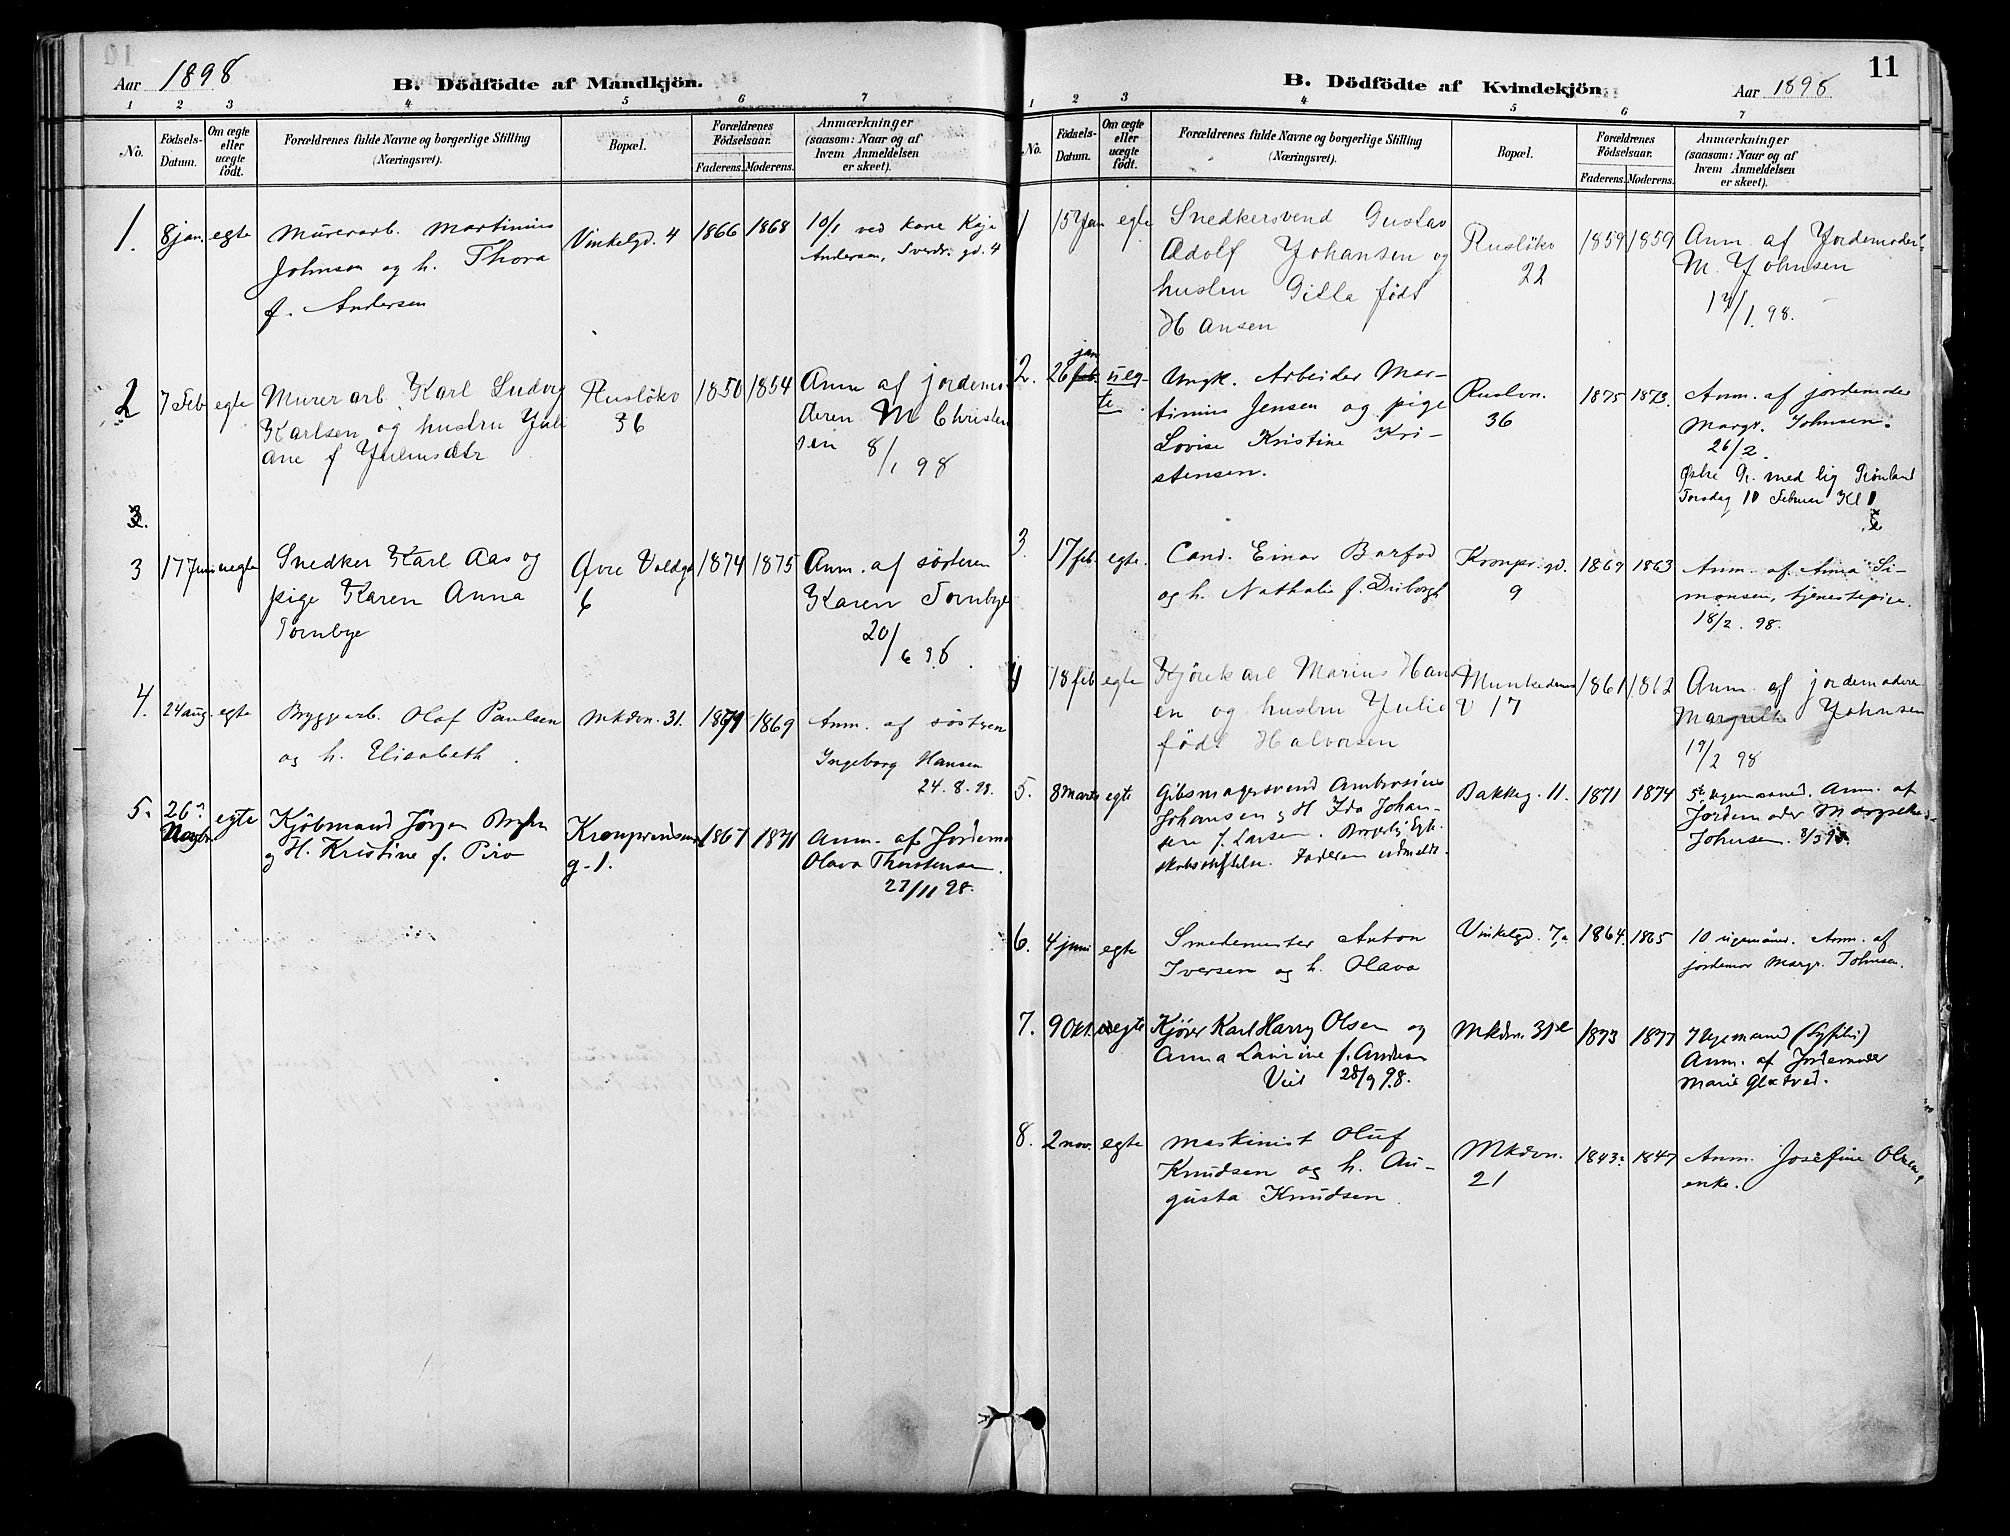 Aar 1898
B. Dödfödte af Mandkjön.
1 2 3 4 5 6 7
No.
Födsels-
Datum.
Om ægte
eller
uægte
født.
Forældrenes fulde Navne og borgerlige Stilling
(Næringsvei).
Bopæl.
Forældrenes
Födselsaar.
Faderens. Moderens.
Anmærkninger
(saasom: Naar og af
hvem Anmeldelsen
er skeet).
1. 8 jan. egte Murerarb. Martinius Vinkelgd. 4 1866 1868 10/1 ved kone Kaja
Johnsen og h. Thora Andersen, Sverdr. gd. 4
f. Andersen
2 7 Feb egte Murerarb. Karl Ludvig Rusløkv 1850 1854 Anm af jordemo
Karlsen og hustru Juli 36 deren M Christen
ane f sen 8/1 98
3.
3 17 Juni uegte Snedker Karl Aas og Øvre Voldgd 1874 1875 Anm. af søsteren
pige Karen Anna 6 Karen Tornbye
Tornbye 20/6 98.
4. 24 aug. egte Bryggarb. Olaf Paulsen Mkdvn. 31. 1871 1869 Anm. af søstren
og h. Elisabeth Ingeborg Hansen
24. 8. 98.
5. 26 egte Kjøbmand Jørgen Kronprindsens 1867 1871 Anm. af Jordemo
Novbr. og H. Kristine f. Piro g. 1. Olava Thorstensen.
27/11 98.
11
B. Dödfödte af Kvindekjön
Aar 1898
1 2 3 4 5 6 7
No.
Födsels-
Datum.
Om ægte
eller
uægte
födt.
Forældrenes fulde Navne og borgerlige Stilling
(Næringsvei).
Bopæl.
Forældrenes
Födselsaar.
Faderens. Moderens.
Anmærkninger
(saasom: Naar og af
hvem Anmeldelsen
er skeet).
1 15 Jan egte Snedkersvend Gustav Rusløkv 1859 1859 Anm. af Jordemoder
Adolf Johansen og 22 M. Johnsen
hustru Gilla født 17/1. 98.
Hansen
jan
2. 26 feb. ueg- Ungk. Arbeider Mar- Ruslvn. 1875 1873. Anm. af jordemoder
te. tinius Jensen og pige 36 Margr. Johnsen.
Lovise Kristine Kri- 26/2.
stensen. Østre Gr. med lig Grønland
Torsdag 10 Februar Kl 1
3. 17 feb. egte. Cand. Einar Barfod Kronpr. gd. 1869 1863 Anm. af Anna Si-
og h. Nathalie f. Driborgh 9 monsen, tjenestepige.
18/2. 98.
4 18 feb egte Kjørekarl Marius Hans Munkedams 1861 1862 Anm. af jordemodere
en og hustru Julie V 17 Margrethe Johnsen
født Halvorsen 19/2 98
5. 8 marts egte Gibsmagersvend Ambrosius Bakkeg. 11. 1871 1874 5te Ugemaaned. Anm. af
Johansen og H Ida Johan- Jordemoder Margrethe
sine f. Larsen. Borgerlig Egte- Johnsen. 8/3 98.
skabsstiftelse. Faderen udmeldt.
6. 4 juni egte Smedemester Anton Vinkelgd. 7a 1864. 1865 10 ugemåner. Anm. af
Iversen og h. Olava jordemor Margr. Johnsen.
7. 9 Okt. egte Kjører Karl Harry Olsen og Mkdvn. 31 e 1873 1877 7 Ugemaaned (Syfilis)
Anna Laurine f. Andersen Anm. af Jordemoder
Viet 28/9 98. Marie Gletved.
8. 2 nov. egte Maskinist Oluf Mkdvn. 1843. 1847 Anm. Josefine Olsen,
Knudsen og h. Au- 21 enke.
gusta Knudsen.